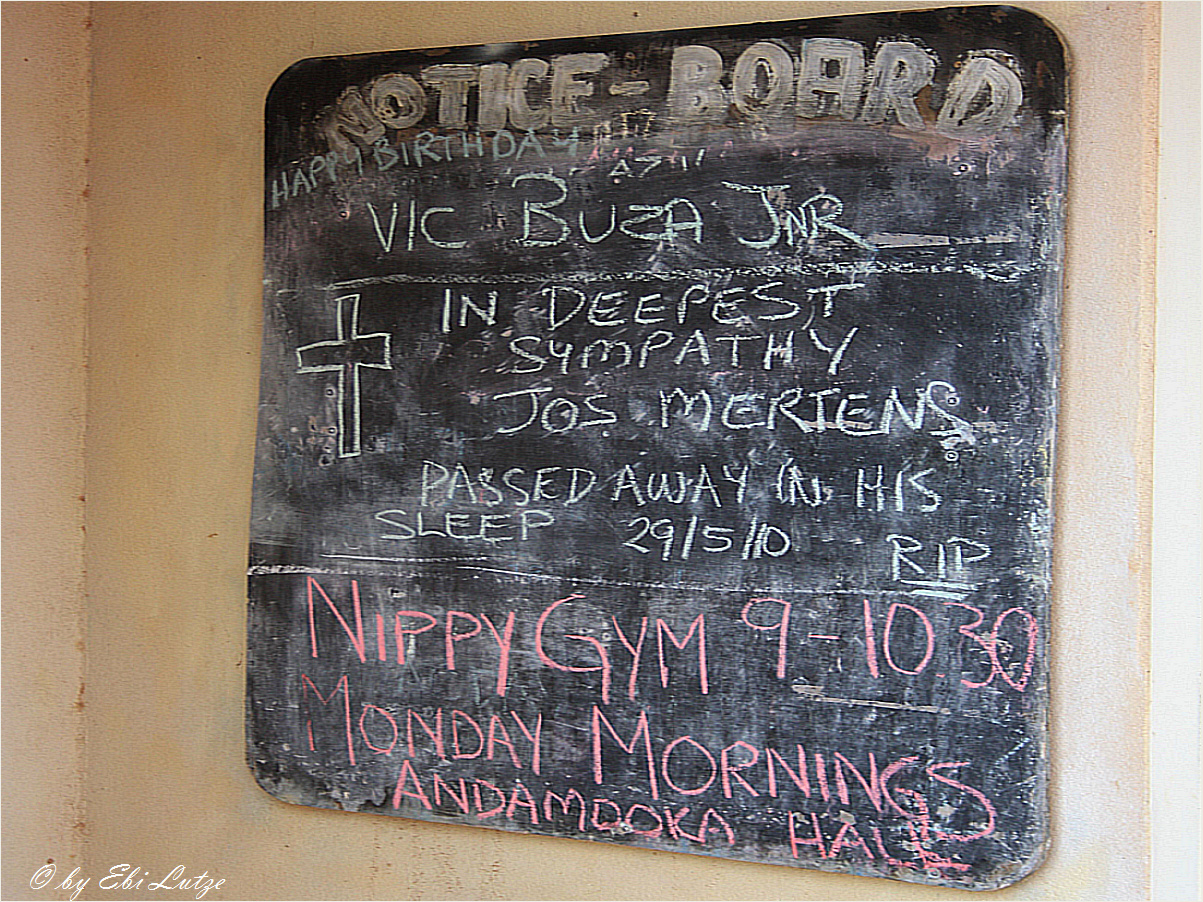 NOTICE-BOARD
HAPPY BIRTHDAY
VIC BUZA JNR
IN DEEPEST
SYMPATHY
JOS MERTENS
PASSED AWAY IN HIS
SLEEP 29/5/10
RIP
NIPPY GYM 9-10.30
MONDAY MORNINGS
ANDAMOOKA HALL
© by Ebi Lutze